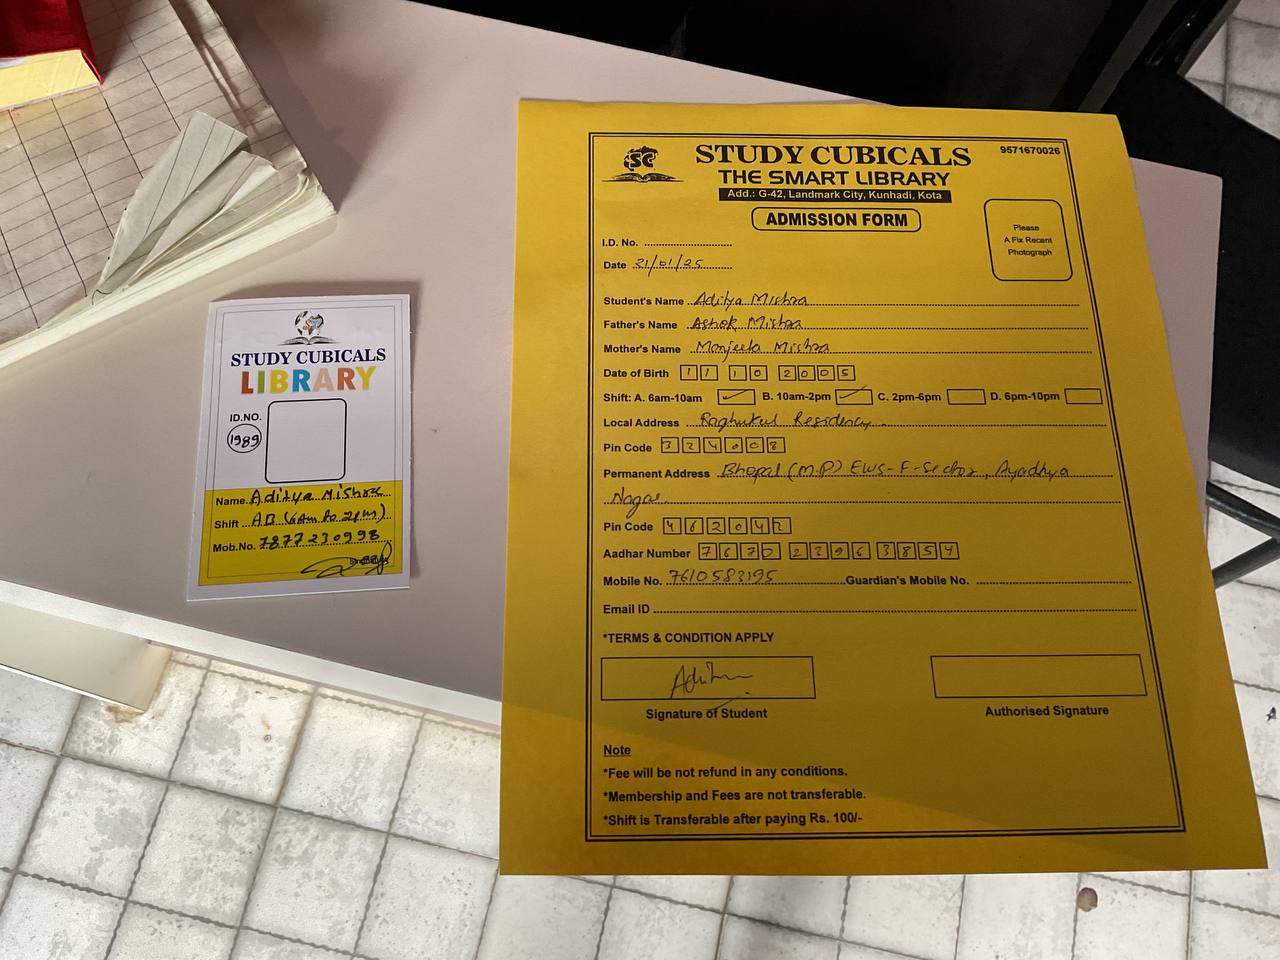 STUDY CUBICALS
LIBRARY
ID.NO.
1989
Name Aditya Mishra
Shift AB (6am to 2pm)
Mob.No. 7877230998
Signature
SC
STUDY CUBICALS
9571670026
THE SMART LIBRARY
Add.: G-42, Landmark City, Kunhadi, Kota
ADMISSION FORM
Please
A Fix Recent
Photograph
I.D. No.
Date 21/01/25
Student's Name Aditya Mishra
Father's Name Ashok Mishra
Mother's Name Manjeeta Mishra
Date of Birth 11 10 2005
Shift: A. 6am-10am ✓ B. 10am-2pm ✓ C. 2pm-6pm D. 6pm-10pm
Local Address Raghukul Residency.
Pin Code 324008
Permanent Address Bhopal (M.P) EWS-F-Sector, Ayodhya
Nagar.
Pin Code 462042
Aadhar Number 7670 2396 3854
Mobile No. 7610583195 Guardian's Mobile No.
Email ID
*TERMS & CONDITION APPLY
Signature of Student
Authorised Signature
Note
*Fee will be not refund in any conditions.
*Membership and Fees are not transferable.
*Shift is Transferable after paying Rs. 100/-